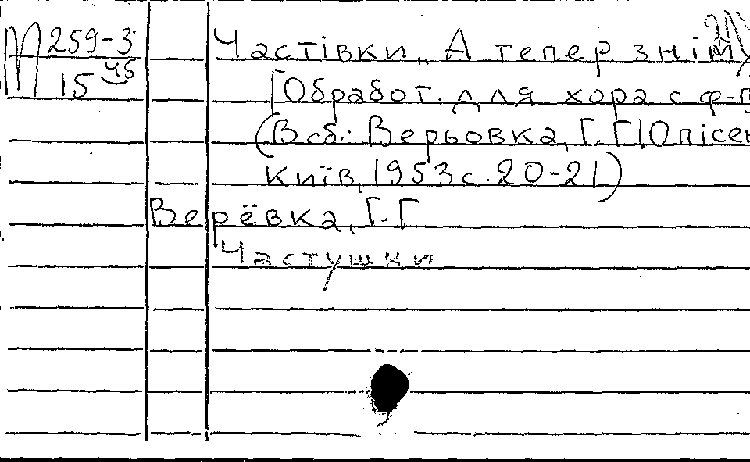 М 259-3
15 45
Частівки. А тепер знім
[Обработ. для хора с ф-п
(В сб.: Верьовка, Г. Г. 10 пісен
Київ, 1953 с. 20-21)
Верёвка, Г. Г
Частушки